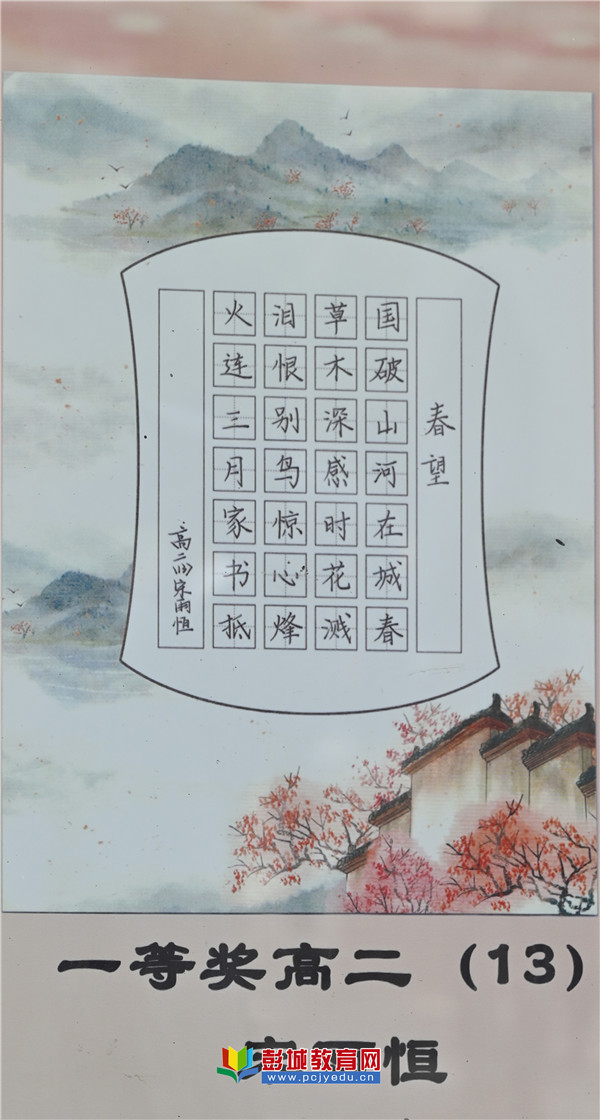 春望
国破山河在城春
草木深感时花溅
泪恨别鸟惊心烽
火连三月家书抵
高二(13)宋雨恒
一等奖高二（13）
恒
彭城教育网
www.pcjyedu.cn